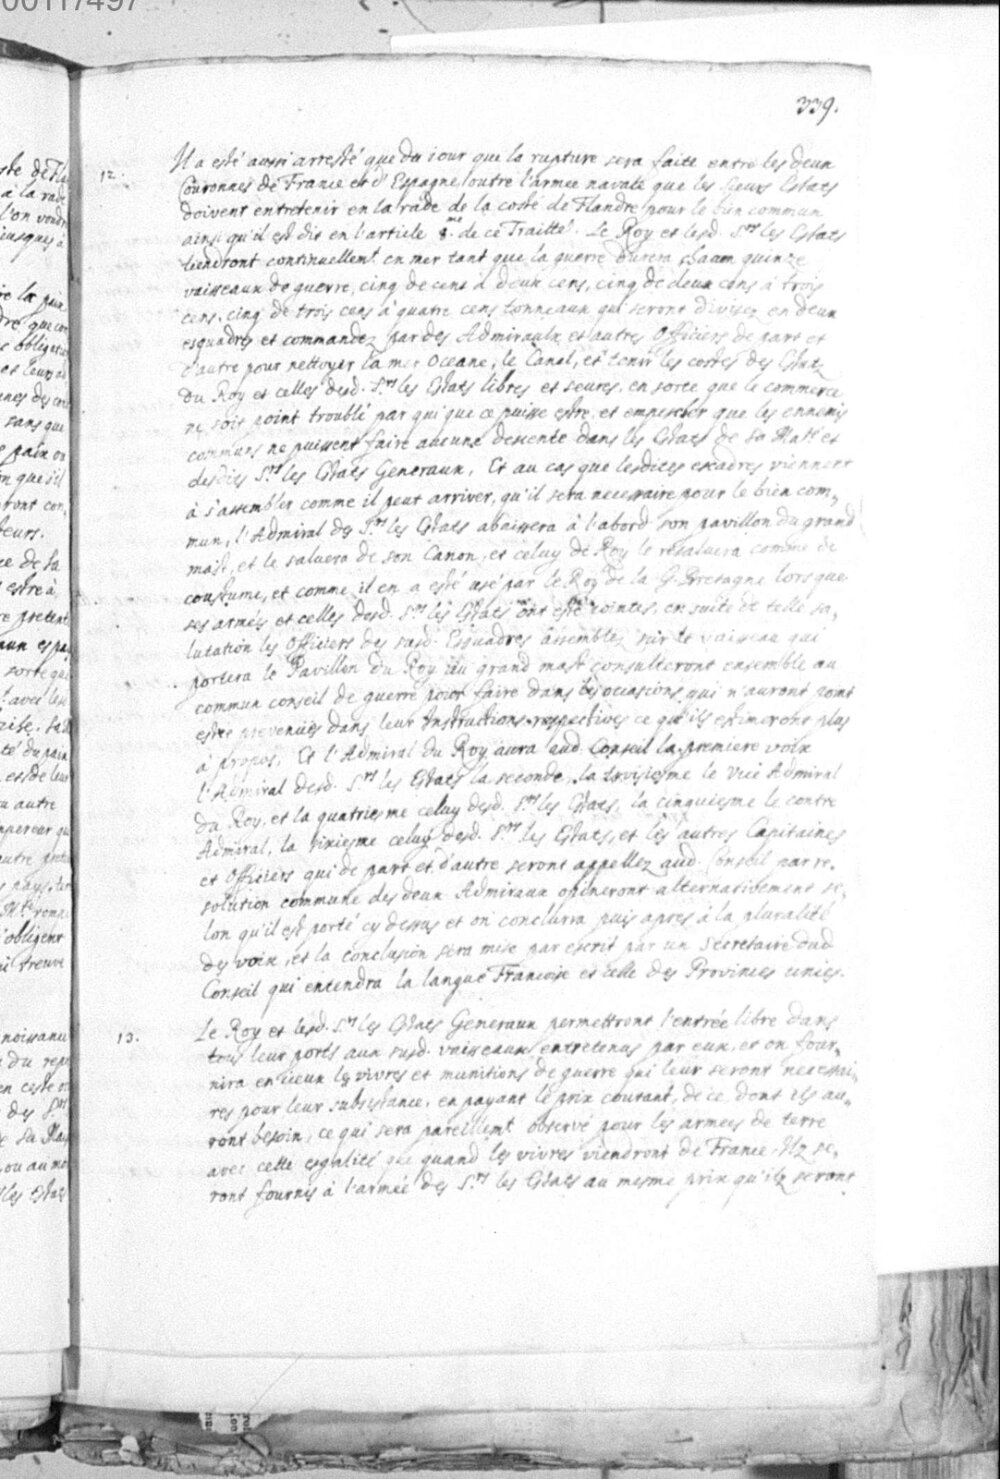 00117497
339.
12. Il a esté aussi arresté que du iour que la rupture sera faite entre les deux
Couronnes de France et d'Espagne, outre l'armée navale que les Sieurs Estats
doivent entretenir en la rade de la coste de Flandre pour le bien commun
ainsi qu'il est dit en l'article 8.me de ce Traitté. Le Roy et lesd. Srs les Estats
tiendront continuellemt. en mer tant que la guerre durera chacun quinze
vaisseaux de guerre, cinq de cens à deux cens, cinq de deux cens à trois
cens, cinq de trois cens à quatre cens tonneaux qui seront divisez en deux
esquadres et commandez par des Admiraulx et autres Officiers de part et
d'autre pour nettoyer la mer Oceane, le Canal, et tenir les costes des Estatz
du Roy et celles desd. Srs les Estats libres et seures, en sorte que le commerce
ne soit point troublé par qui que ce puisse estre, et empescher que les ennemis
communs ne puissent faire aucune descente dans les Estats de sa Maté et
desdits Srs les Estats Generaux, Et au cas que lesdites escadres viennent
à s'assembler comme il peut arriver, qu'il sera necessaire pour le bien com„
mun, l'Admiral des Srs les Estats abaissera à l'abord son pavillon du grand
mast, et le saluera de son Canon, et celuy de Roy le resaluera comme de
coustume, et comme il en a esté usé par le Roy de la G. Bretagne lorsque
ses armées et celles desd. Srs les Estats ont esté iointes, en suite de telle sa„
lutation les Officiers des susd. Esquadres assemblez sur le vaisseau qui
portera le Pavillon du Roy au grand mast consulteront ensemble au
commun conseil de guerre pour faire dans les occasions qui n'auront point
estre prevenues dans leur Instructions respectives ce qu'ils estimeront plus
à propos, Et l'Admiral du Roy aura aud. Conseil la premiere voix
l'Admiral desd. Srs les Estats la seconde, la troisiesme le Vice Admiral
du Roy, et la quatriesme celuy desd. Srs les Estats, la cinquiesme le contre
Admiral, la sixiesme celuy desd. Srs les Estats, et les autres Capitaines
et Officiers qui de part et d'autre seront appellez aud. Conseil par re„
solution commune des deux Admiraux opineront alternativement se„
lon qu'il est porté cy dessus et on conclurra puis apres à la pluralité
des voix, et la conclusion sera mise par escrit par un Secretaire dud
Conseil qui entendra la langue Françoise et celle des Provinces unies.
13. Le Roy et lesd. Srs les Estats Generaux permettront l'entrée libre dans
tous leur ports aux susd. vaisseaux entretenus par eux, et on four„
nira en iceux les vivres et munitions de guerre qui leur seront necessai„
res pour leur subsistance, en payant le prix courant, de ce dont ils au„
ront besoin, ce qui sera pareillemt. observé pour les armées de terre
avec cette esgalité que quand les vivres viendront de France, Ilz se„
ront fournis à l'armée des Srs les Estats au mesme prix qu'ilz seront